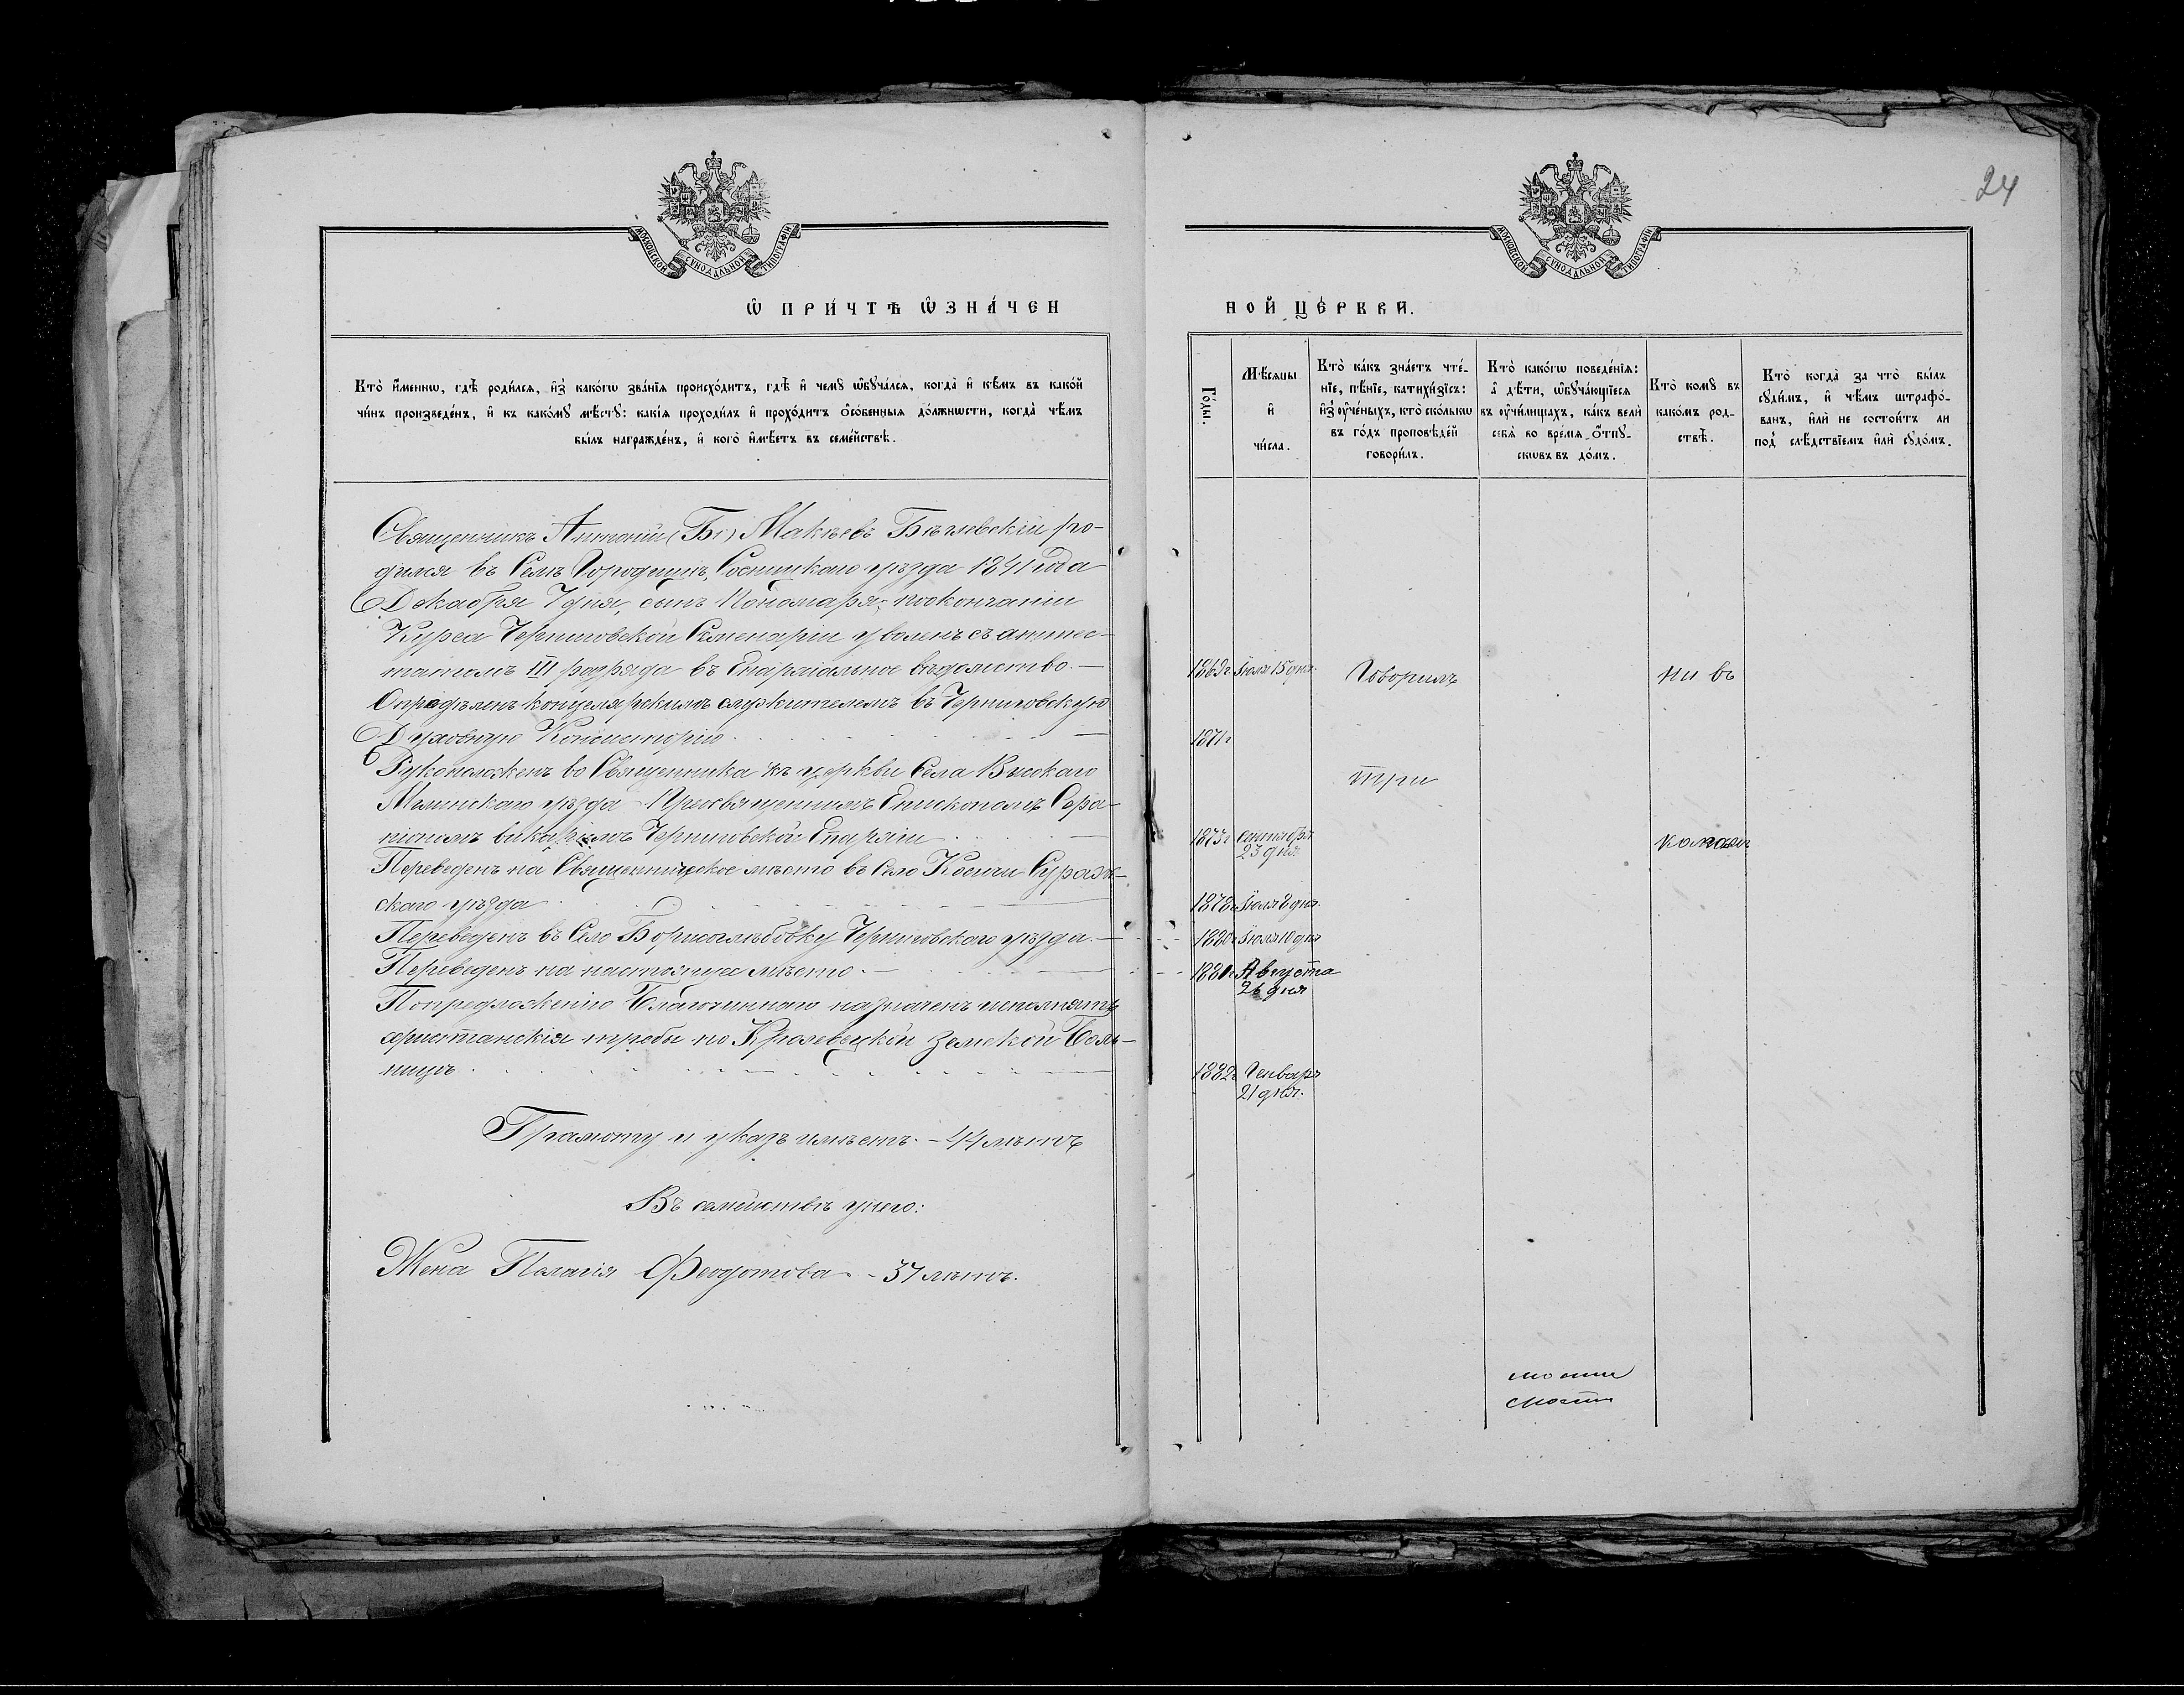 МОСКОВСКОЙ СѴНОДАЛЬНОЙ ТИПОГРАФІИ
Ѡ ПРИ́ЧТѢ ѠЗНА́ЧЕН
Кто̀ и҆́меннѡ, гдѣ̀ роди́лсѧ, и҆з̾ како́гѡ зва́нїѧ происхо́дитъ, гдѣ̀ и҆ чемꙋ̀ ѡ҆бꙋча́лсѧ, когда̀ и҆ кѣ́мъ въ како́й
чи́нъ произведе́нъ, и҆ къ како́мꙋ мѣ́стꙋ: какі̑ѧ проходи́лъ и҆ прохо́дитъ ѻ҆со́бенныѧ до́лжнѡсти, когда̀ чѣ́мъ
бы́лъ награжде́нъ, и҆ кого̀ и҆мѣ́етъ въ семе́йствѣ.
Священникъ Антоній (Бѣ) Макѣевъ Бѣглевскій ро-
дился въ Селѣ Городищѣ, Сосницкаго уѣзда 1841 года
Декабря 7 дня, сынъ Пономаря; по окончаніи
Курса Черниговской Семенаріи уволенъ съ аттес-
татомъ III разряда въ Епархіальное вѣдомство. —
Опредѣленъ концелярскимъ служителемъ въ Черниговскую
Духовную Консисторію
Рукоположенъ во Священника къ церкви Села Высокаго
Мглинскаго уѣзда Преосвященнымъ Епископомъ Сера-
піономъ викаріемъ Черниговской Епархіи
Переведенъ на Священническое мѣсто въ Село Косичи Сураж-
скаго уѣзда
Переведенъ въ Село Борисоглѣбовку Черниговскаго уѣзда. —
Переведенъ на настоящее мѣсто. —
По предложенію Благочиннаго назначенъ исполнять
христіанскія требы по Кролевецкой земской Боль-
ницѣ
Грамоту и указъ имѣетъ. — 44 лѣтъ
Въ семействѣ у него:
Жена Палагія Феодотова — 37 лѣтъ.
24
МОСКОВСКОЙ СѴНОДАЛЬНОЙ ТИПОГРАФІИ
НОЙ ЦЕ́РКВИ.
Го́ды.
Мѣ́сѧцы и҆ чи́сла.
Кто̀ ка́къ зна́етъ чте́-
нїе, пѣ́нїе, катихи́зїсъ:
и҆з̾ ᲂу҆че́ныхъ, кто̀ ско́лькѡ
въ го́дъ проповѣ́дей
говори́лъ.
Кто̀ како́гѡ поведе́нїѧ:
а҆ дѣ́ти, ѡ҆бꙋча́ющїесѧ
въ ᲂу҆чи́лищахъ, ка́къ велѝ
себѧ̀ во вре́мѧ ѻ҆́тпꙋ-
скѡвъ въ до́мъ.
Кто̀ комꙋ̀ въ
како́мъ род-
ствѣ̀.
Кто̀ когда̀ за что̀ бы́лъ
сꙋди́мъ, и҆ чѣ́мъ штрафо́-
ванъ, и҆лѝ не состои́тъ ли
под̾ слѣ́дствїемъ и҆лѝ сꙋдо́мъ.
1869г Іюля 15 дня. Говорилъ Ни въ
1871г
три
1875г Сентября комъ
23 дня
1878г Іюля 8 дня.
1880г Іюля 10 дня
1881г Августа
26 дня
1882г Генваря
21 дня.